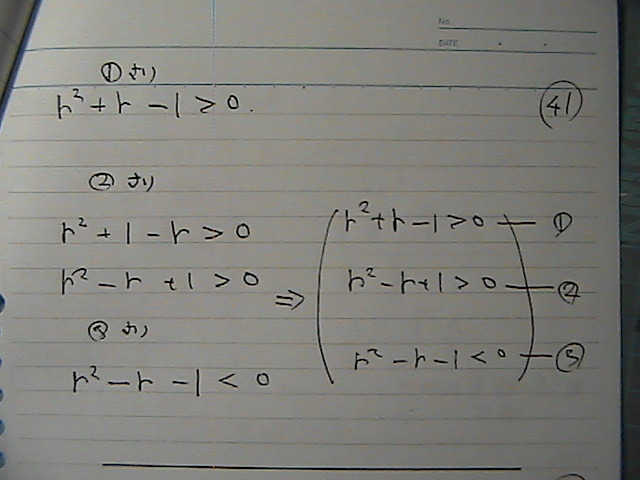 No.
DATE
①より
r²+r-1>0.
㊶
②より
r²+1-r>0
r²-r+1>0
③より
r²-r-1<0
⇒
r²+r-1>0 ― ①
r²-r+1>0 ― ②
r²-r-1<0 ― ③